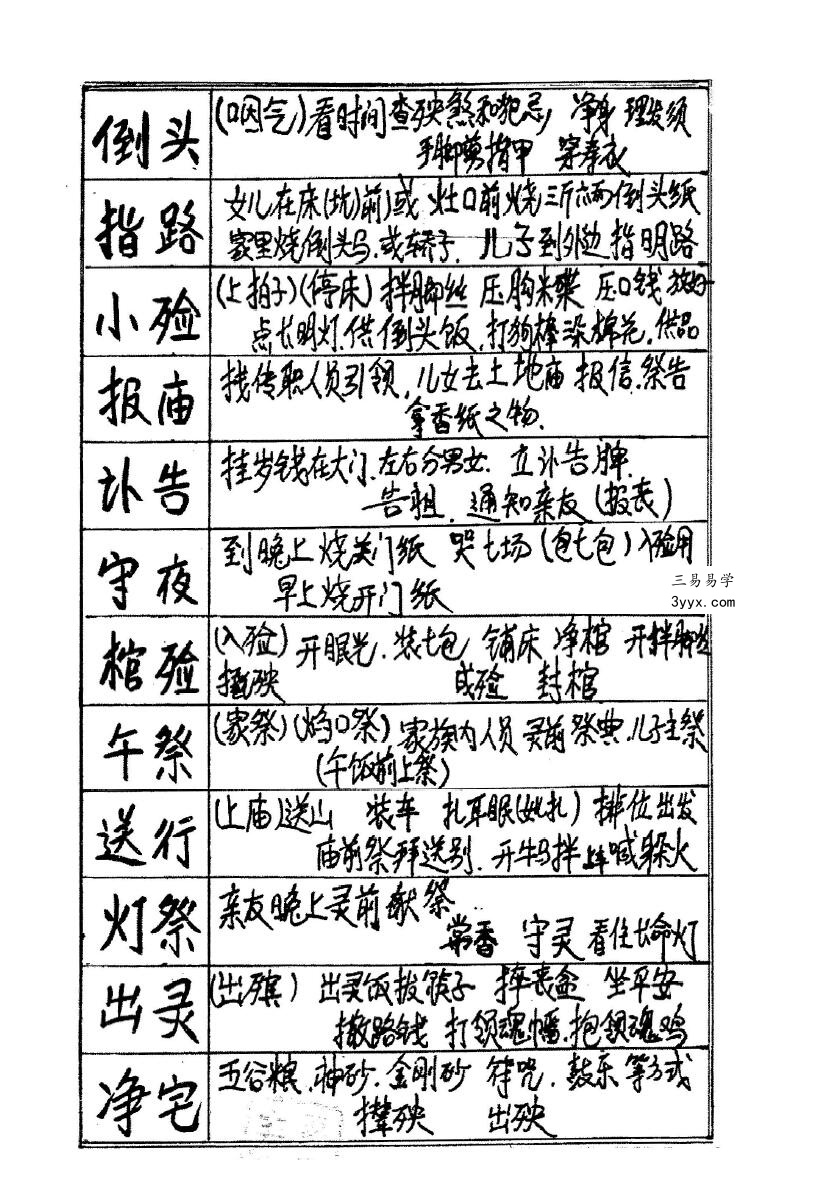 倒头
(咽气)看时间查殃煞和犯忌, 净身 理发须
手脚剪指甲 穿孝衣
指路
女儿在床(坑)前)或 灶口前烧三斤六两倒头纸
家里烧倒头马.或轿子. 儿子到外边 指明路
小殓
(上拍子)(停床) 拌脚丝 压胸 压口钱 放好
点长明灯.供倒头饭,打狗棒染棉花.供品
报庙
找传职人员引领,儿女去土地庙 报信.祭告
拿香纸之物.
讣告
挂岁钱在大门.左右分男女. 立讣告牌.
告祖. 通知亲友(报丧)
守夜
到晚上 烧关门纸 哭七场(包七包)入殓用
早上烧开门纸
三易易学
3yyx.com
棺殓
(入殓) 开眼光.装七包 铺床 净棺 开拌脚丝
殃 成殓 封棺
午祭
(家祭)(焰口祭) 家族内人员 灵前祭典.儿子主祭
(午饭前上祭)
送行
(上庙)送山 装车 扎耳眼(她扎) 排位出发
庙前祭拜送别. 开牛马拌 喊躲火
灯祭
亲友晚上灵前献祭
香 守灵 看住长命灯
出灵
(出殡) 出灵饭拔筷子 摔丧盆 坐平安
撒路钱 打领魂幡.抱领魂鸡
净宅
五谷粮.神砂.金刚砂 符咒.鼓乐等方式
撵殃 出殃